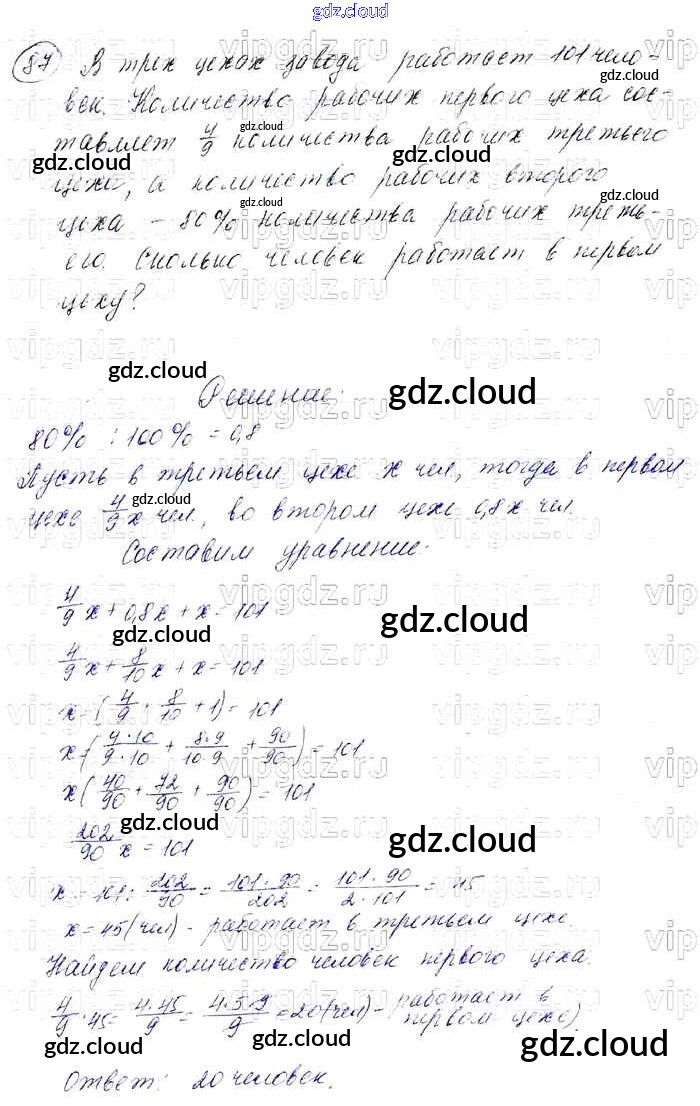 gdz.cloud
87 В трех цехах завода работает 101 чело-
век. Количество рабочих первого цеха сос-
тавляет 4/9 количества рабочих третьего
цеха, а количество рабочих второго
цеха – 80% количества рабочих треть-
его. Сколько человек работает в первом
цеху?
Решение:
80% : 100% = 0,8
Пусть в третьем цехе x чел, тогда в первом
цехе 4/9 x чел., во втором цехе 0,8x чел.
Составим уравнение:
4/9 x + 0,8x + x = 101
4/9 x + 8/10 x + x = 101
x · (4/9 + 8/10 + 1) = 101
x · (4·10/9·10 + 8·9/10·9 + 90/90) = 101
x (40/90 + 72/90 + 90/90) = 101
202/90 x = 101
x = 101 : 202/90 = 101·90/202 = 101·90/2·101 = 45
x = 45 (чел) - работает в третьем цехе.
Найдем количество человек первого цеха.
4/9 · 45 = 4·45/9 = 4·5·9/9 = 20 (чел) - (работает в
первом цехе)
Ответ: 20 человек.